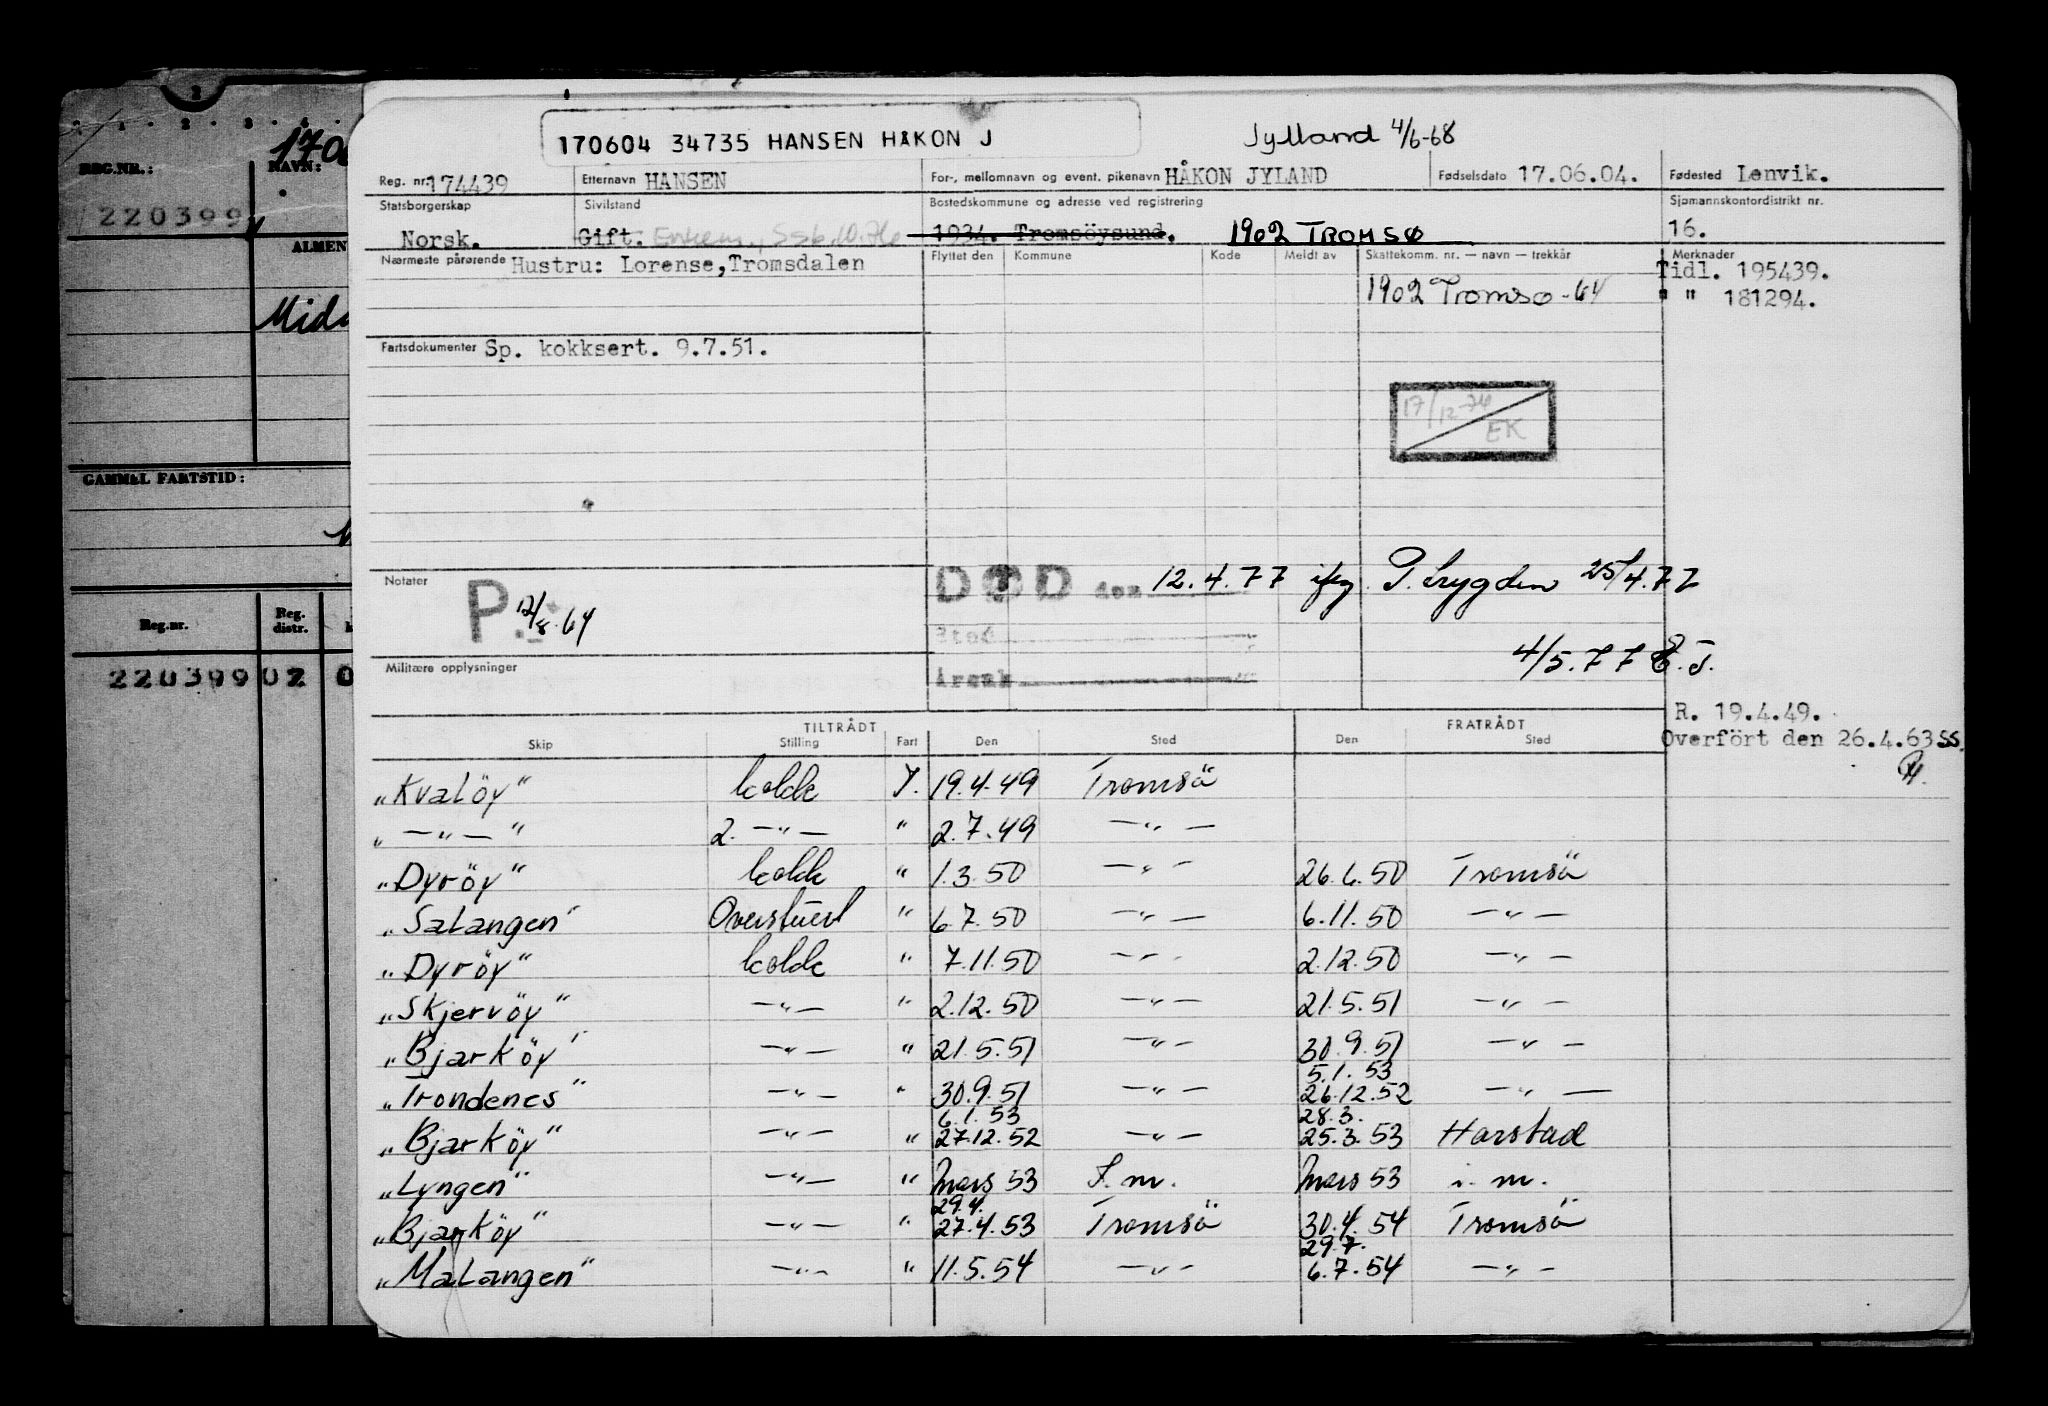 2
1 · 2 · 3 · 4
REG.NR.:
NAVN:
220399
ALMEN
GAMMEL FARTSTID:
Reg.nr.
Reg. distr.
220399 02 0
170604 34735 HANSEN HÅKON J
Jylland 4/6-68
Reg. nr. 174439 Etternavn HANSEN For-, mellomnavn og event. pikenavn HÅKON JYLAND Fødselsdato 17.06.04. Fødested Lenvik.
Statsborgerskap Sivilstand Bostedskommune og adresse ved registrering Sjømannskontordistrikt nr.
Norsk. Gift. Enkem., SS 6.10.76 1934. Tromsöysund. 1902 TROMSØ 16.
Nærmeste pårørende Hustru: Lorense, Tromsdalen Flyttet den Kommune Kode Meldt av Skattekomm. nr. — navn — trekkår Merknader
Tidl. 195439.
1902 Tromsø -64 " " 181294.
Fartsdokumenter Sp. kokksert. 9.7.51.
17/12-74
EK
Notater
P. 12/8-64
DØD den 12.4.77 iføg. P. trygden 25/4.77
Sted
4/5.77 E.J.
Militære opplysninger
Årsak
R. 19.4.49.
TILTRÅDT FRATRÅDT
Overfört den 26.4.63 SS.
Skip Stilling Fart Den Sted Den Sted
„Kvalöy" kokk J. 19.4.49 Tromsö
„ — „ — " 2. — „ — " 2.7.49 — „ —
„Dyröy" kokk " 1.3.50 — „ — 26.6.50 Tromsö
„Salangen" Overstuert " 6.7.50 — „ — 6.11.50 — „ —
„Dyröy" kokk " 7.11.50 — „ — 2.12.50 — „ —
„Skjervöy" — „ — " 2.12.50 — „ — 21.5.51 — „ —
„Bjarköy" — „ — " 21.5.51 — „ — 30.9.51 — „ —
5.1.53
„Trondenes" — „ — " 30.9.51 — „ — 26.12.52 — „ —
6.1.53 28.3.
„Bjarköy" — „ — " 27.12.52 — „ — 25.3.53 Harstad
„Lyngen" — „ — " Mars 53 I.m. Mars 53 i.m.
29.4.
„Bjarköy" — „ — " 27.4.53 Tromsö 30.4.54 Tromsö
29.7.
„Malangen" — „ — " 11.5.54 — „ — 6.7.54 — „ —